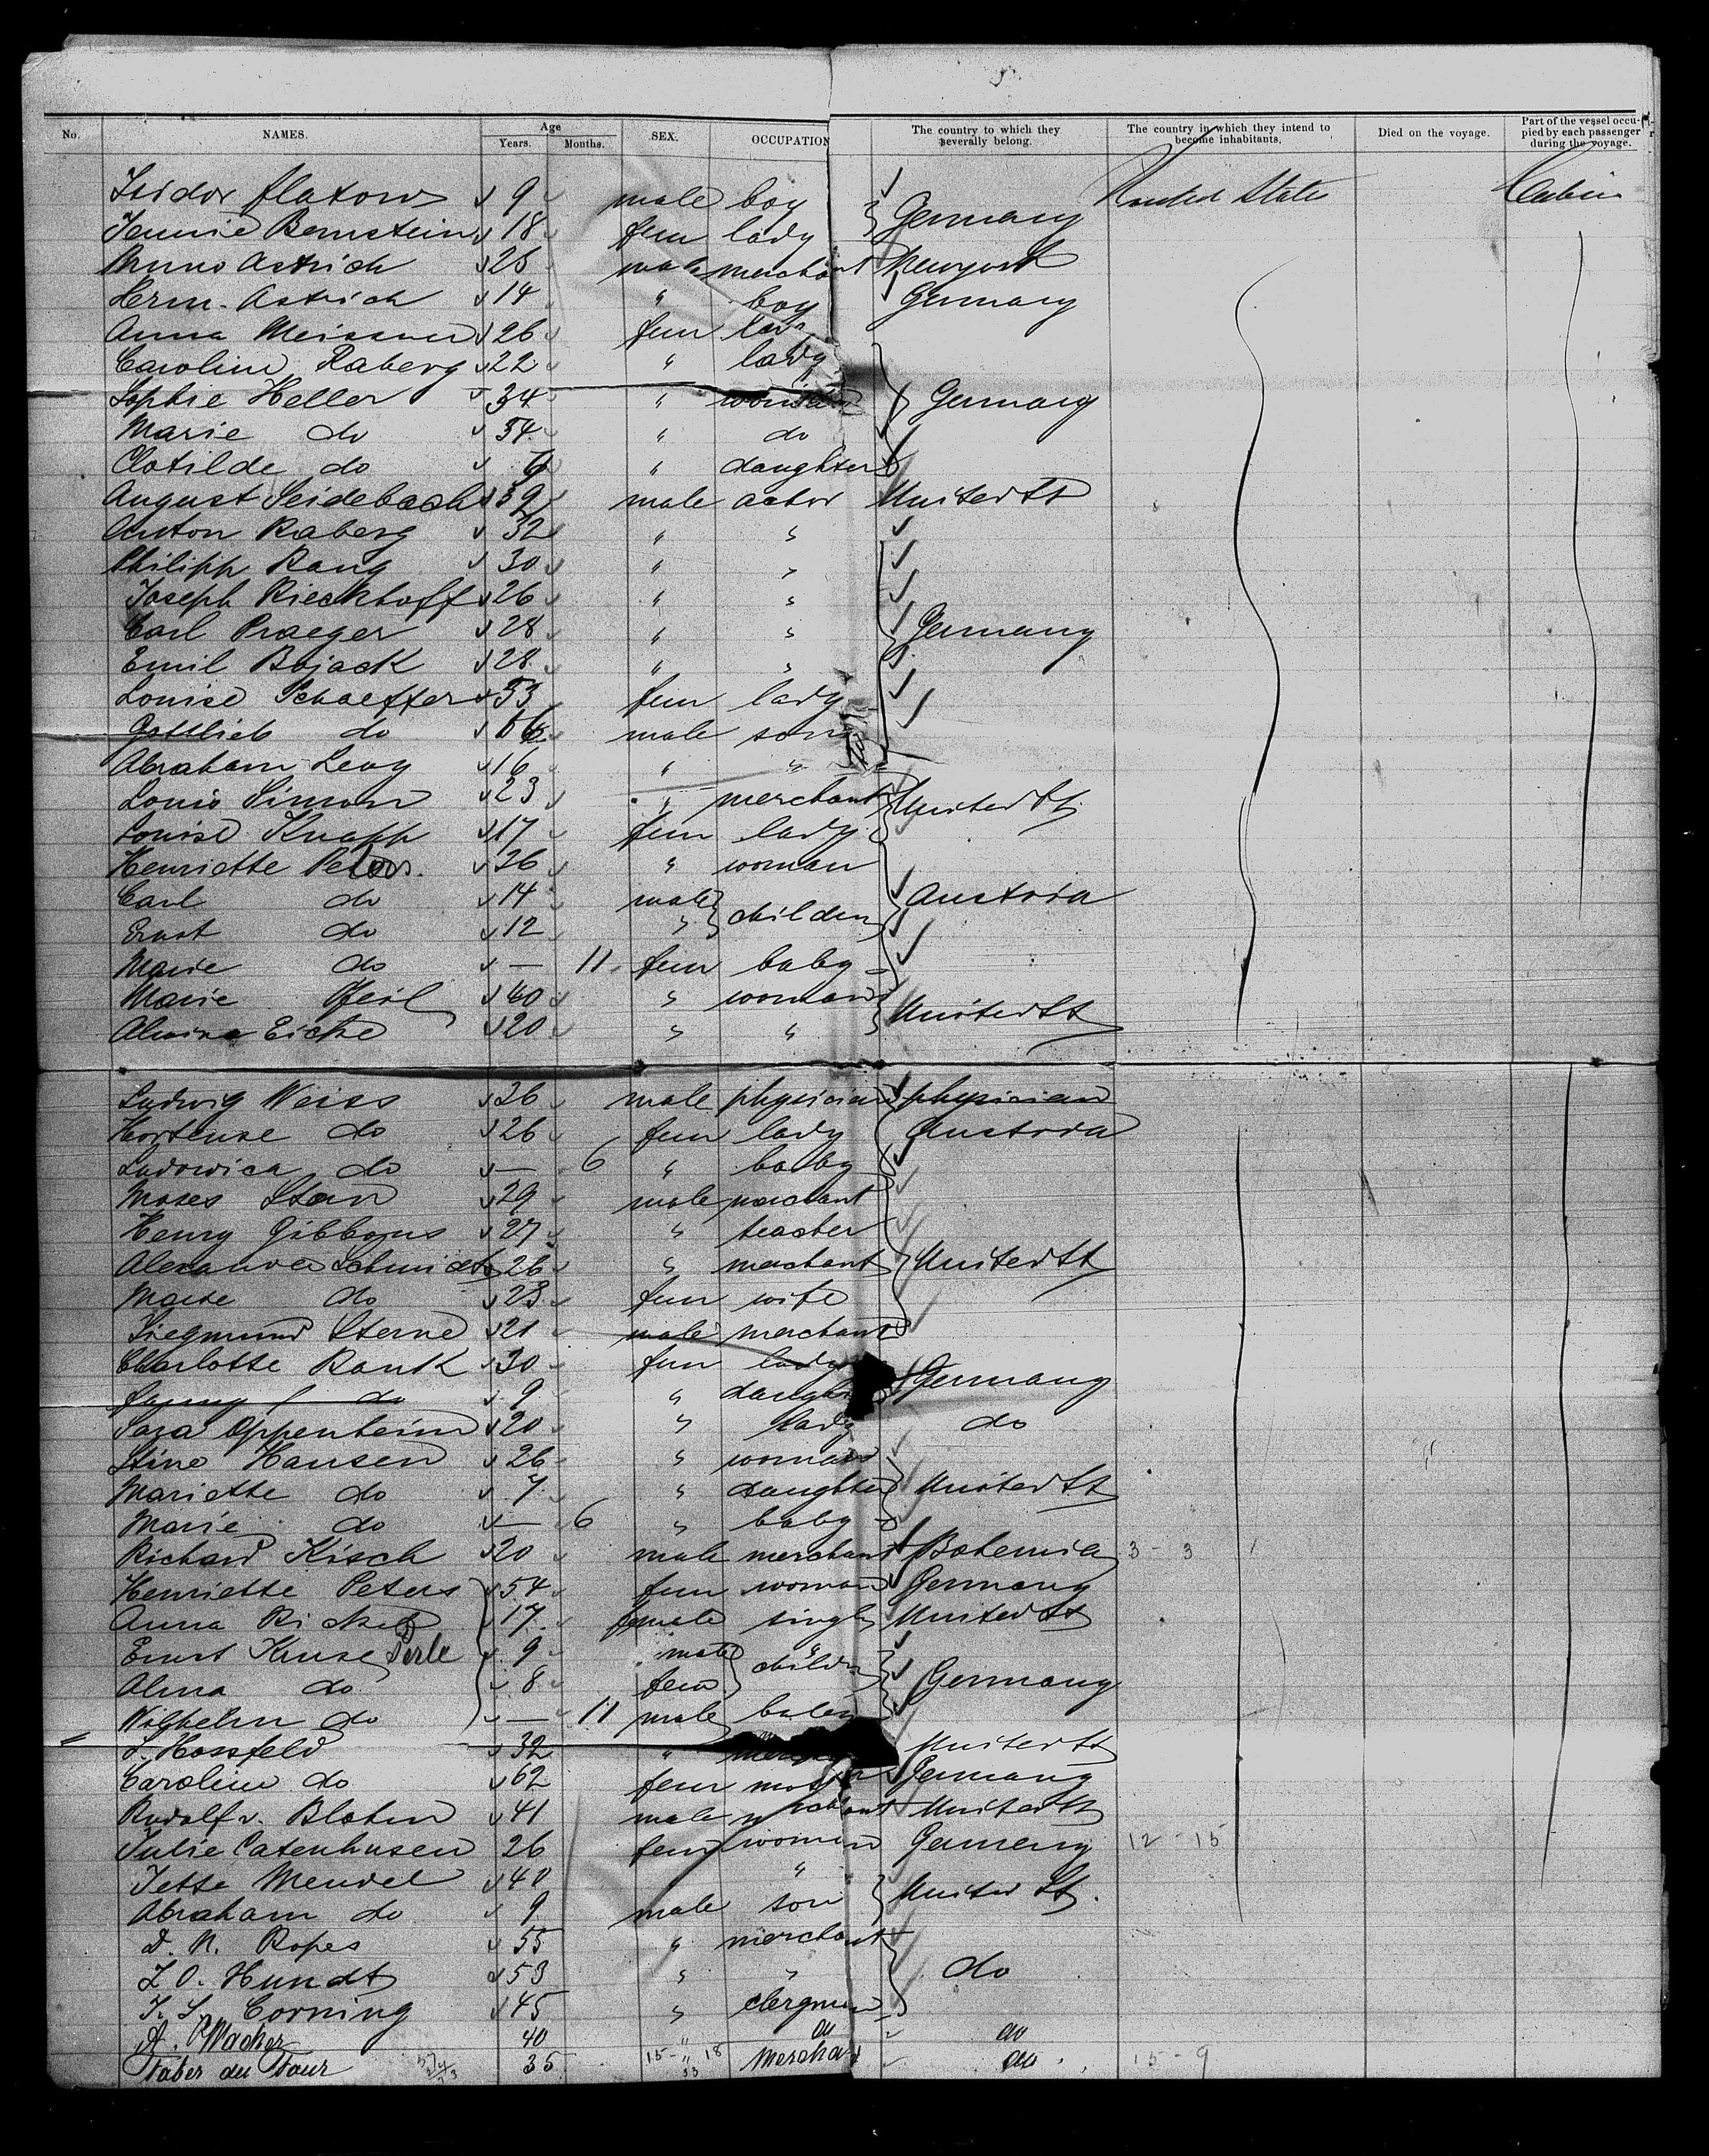 No. NAMES. Age Years. Months. SEX. OCCUPATION The country to which they severally belong. The country in which they intend to become inhabitants. Died on the voyage. Part of the vessel occupied by each passenger during the voyage.
Isidor Flatow 9 male boy United States Cabin
Jennie Bernstein 18 fem lady Germany
Bruno Astrich 26 male merchant Newyork
Herm. Astrich 14 " boy Germany
Anna Meissner 26 fem lady
Caroline Raberg 22 " lady
Sophie Heller 34 " woman Germany
Marie do 34 " do
Clotilde do 6 " daughter
August Seidebach 39 male actor United St
Anton Raberg 32 " "
Philipp Rang 30 " "
Joseph Rieckhoff 26 " "
Carl Praeger 28 " " Germany
Emil Bojack 28 " "
Louise Schaeffer 53 fem lady
Gottlieb do 16 male son
Abraham Levy 16 " "
Louis Simon 23 " merchant United St
Louise Knapp 17 fem lady
Henriette Peters. 36 " woman
Carl do 14 male Austria
Ernst do 12 " children
Marie do — 11 fem baby
Marie Pfeil 40 " woman United St
Alwine Eicke 20 " "
Ludwig Weiss 36 male physician physician
Hortense do 26 fem lady Austria
Ludowica do — 6 " baby
Moses Stern 29 male merchant
Henry Gibbons 27 " teacher
Alexander Schmidt 26 " merchant United St
Marie do 23 fem wife
Siegmund Sterne 21 male merchant
Charlotte Rank 30 fem lady
Fanny do 9 " daughter Germany
Sara Oppenheim 20 " lady do
Stine Hansen 26 " woman
Mariette do 7 " daughter United St
Marie do — 6 " baby
Richard Kisch 20 male merchant Bohemia 3 - 3
Henriette Peters 54 fem woman Germany
Anna 17 female single United St
Ernst Kruse Perle 9 male
Alma do 8 fem children Germany
Wilhelm do — 11 male baby
L. Hossfeld 32 " United St
Caroline do 62 fem mother Germany
Rudolf v. Bloten 41 male merchant United St
Julie Catenhusen 26 fem woman Germany 12 - 15
Jette Mendel 40 "
Abraham do 9 male son United St.
D. N. Ropes 55 " merchant
L O. Hundt 53 " " do
J. L. Corning 45 " clergman
A. 40 " do do
Faber du Faur 35 15 - " 18 Mercha do 15 - 9
33